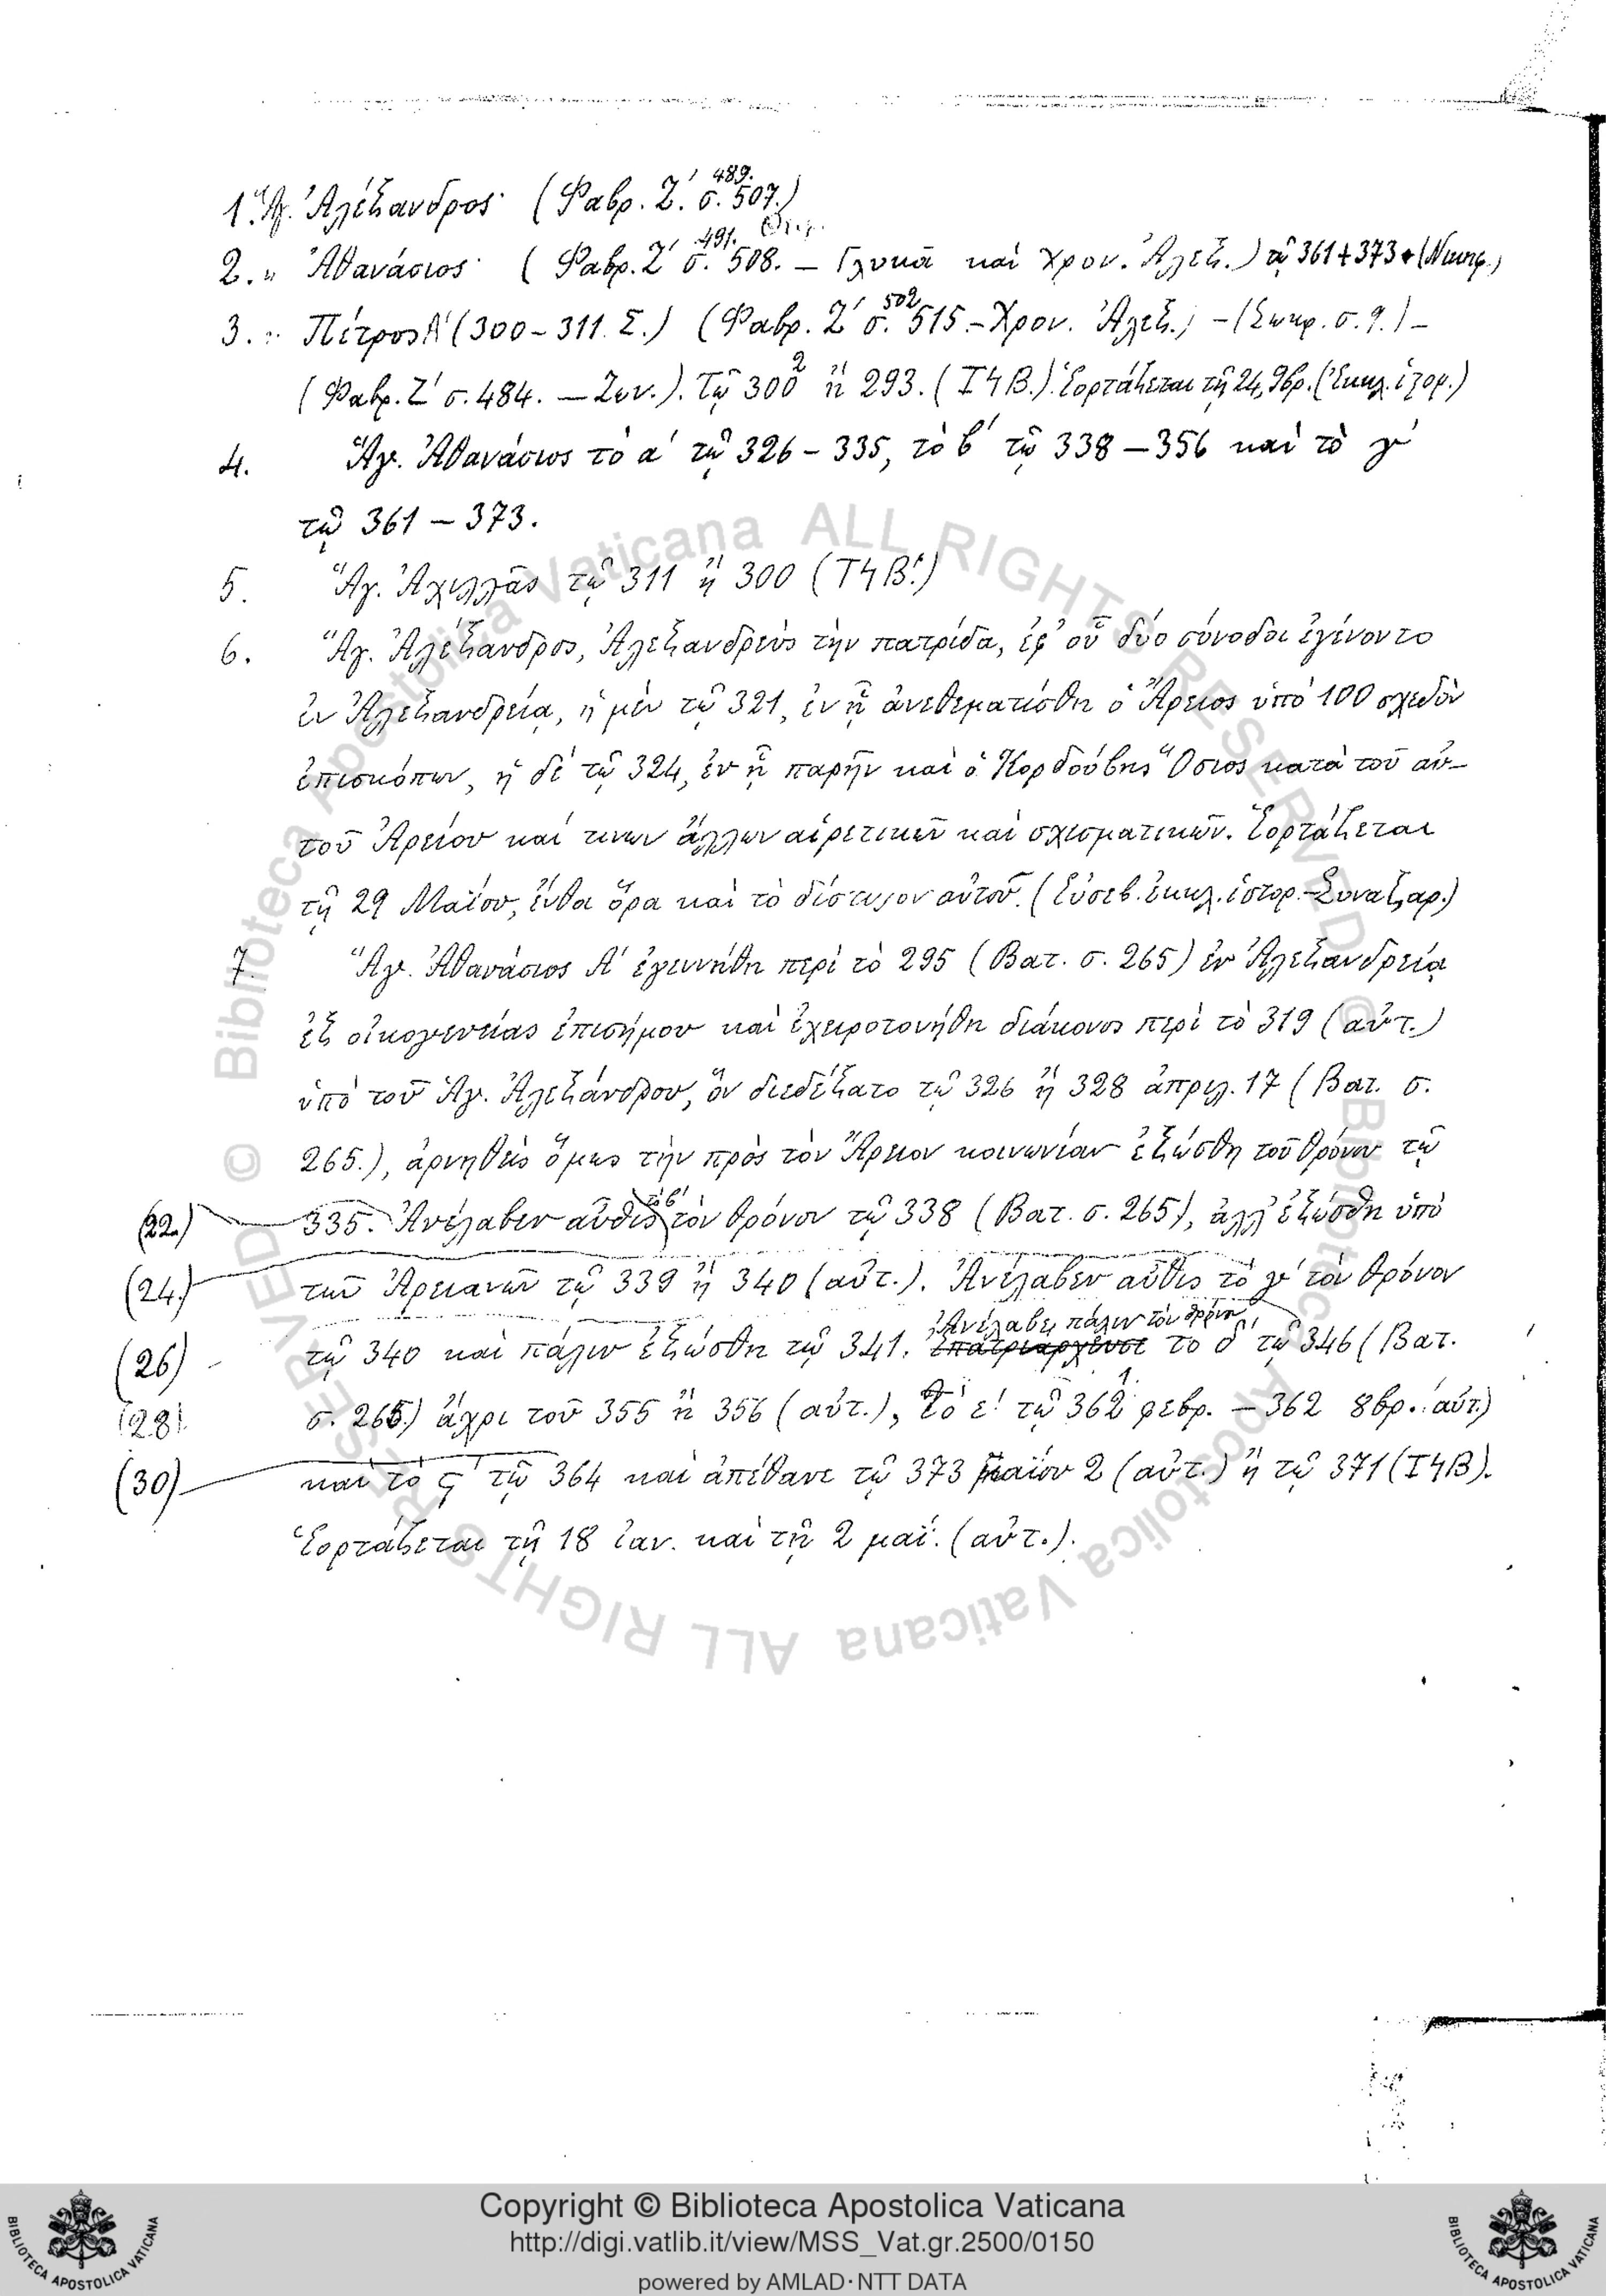 489.
1. Ἅγ. Ἀλέξανδρος (Φαβρ. Ζ'. σ. 507.)
491.
2. " Ἀθανάσιος (Φαβρ. Ζ' σ. 508. — Γλυκᾶ καὶ Χρον. Ἀλεξ.) τῷ 361 + 373 (Νικηφ.)
502
3. " Πέτρος Α' (300 – 311. Σ.) (Φαβρ. Ζ' σ. 515 – Χρον. Ἀλεξ.) – (Σωκρ. σ. 9.) –
(Φαβρ. Ζ' σ. 484. — Ζων.). Τῷ 300 ἢ 293. (ΙϟΒ.). Ἑορτάζεται τῇ 24 9βρ. (Ἐκκλ. ἱστορ.)
4. Ἅγ. Ἀθανάσιος τὸ α' τῷ 326 – 335, τὸ β' τῷ 338 – 356 καὶ τὸ γ'
τῷ 361 – 373.
5. Ἅγ. Ἀχιλλᾶς τῷ 311 ἢ 300 (ΙϟΒ.)
6. Ἅγ. Ἀλέξανδρος, Ἀλεξανδρεὺς τὴν πατρίδα, ἐφ' οὗ δύο σύνοδοι ἐγένοντο
ἐν Ἀλεξανδρείᾳ, ἡ μὲν τῷ 321, ἐν ᾗ ἀνεθεματίσθη ὁ Ἄρειος ὑπὸ 100 σχεδὸν
ἐπισκόπων, ἡ δὲ τῷ 324, ἐν ᾗ παρῆν καὶ ὁ Κορδούβης Ὅσιος κατὰ τοῦ αὐ–
τοῦ Ἀρείου καί τινων ἄλλων αἱρετικῶν καὶ σχισματικῶν. Ἑορτάζεται
τῇ 29 Μαΐου, ἔνθα ὅρα καὶ τὸ δίστιχον αὐτοῦ. (Εὐσεβ. ἐκκλ. ἱστορ. – Συναξαρ.)
7. Ἅγ. Ἀθανάσιος Α' ἐγεννήθη περὶ τὸ 295 (Βατ. σ. 265) ἐν Ἀλεξανδρείᾳ
ἐξ οἰκογενείας ἐπισήμου καὶ ἐχειροτονήθη διάκονος περὶ τὸ 319 (αὐτ.)
ὑπὸ τοῦ Ἁγ. Ἀλεξάνδρου, ὃν διεδέξατο τῷ 326 ἢ 328 ἀπριλ. 17 (Βατ. σ.
265.), ἀρνηθεὶς ὅμως τὴν πρὸς τὸν Ἄρειον κοινωνίαν ἐξώσθη τοῦ θρόνου τῷ
τὸ β'
(22) 335. Ἀνέλαβεν αὖθις τὸν θρόνον τῷ 338 (Βατ. σ. 265), ἀλλ' ἐξώσθη ὑπὸ
(24) τῶν Ἀρειανῶν τῷ 339 ἢ 340 (αὐτ.). Ἀνέλαβεν αὖθις τὸ γ' τὸν θρόνον
Ἀνέλαβε πάλιν τὸν θρόνον
(26) τῷ 340 καὶ πάλιν ἐξώσθη τῷ 341. ἐπατριάρχευσε τὸ δ' τῷ 346 (Βατ.
(28) σ. 265) ἄχρι τοῦ 355 ἢ 356 (αὐτ.), τὸ ε' τῷ 362 φεβρ. – 362 8βρ. (αὐτ.)
(30) καὶ τὸ ϛ' τῷ 364 καὶ ἀπέθανε τῷ 373 μαΐου 2 (αὐτ.) ἢ τῷ 371 (ΙϟΒ).
Ἑορτάζεται τῇ 18 ἰαν. καὶ τῇ 2 μαΐ. (αὐτ.).
© Biblioteca Apostolica Vaticana ALL RIGHTS RESERVED
© Biblioteca Apostolica Vaticana ALL RIGHTS RESERVED
Copyright © Biblioteca Apostolica Vaticana
http://digi.vatlib.it/view/MSS_Vat.gr.2500/0150
powered by AMLAD·NTT DATA
BIBLIOTECA APOSTOLICA VATICANA
BIBLIOTECA APOSTOLICA VATICANA